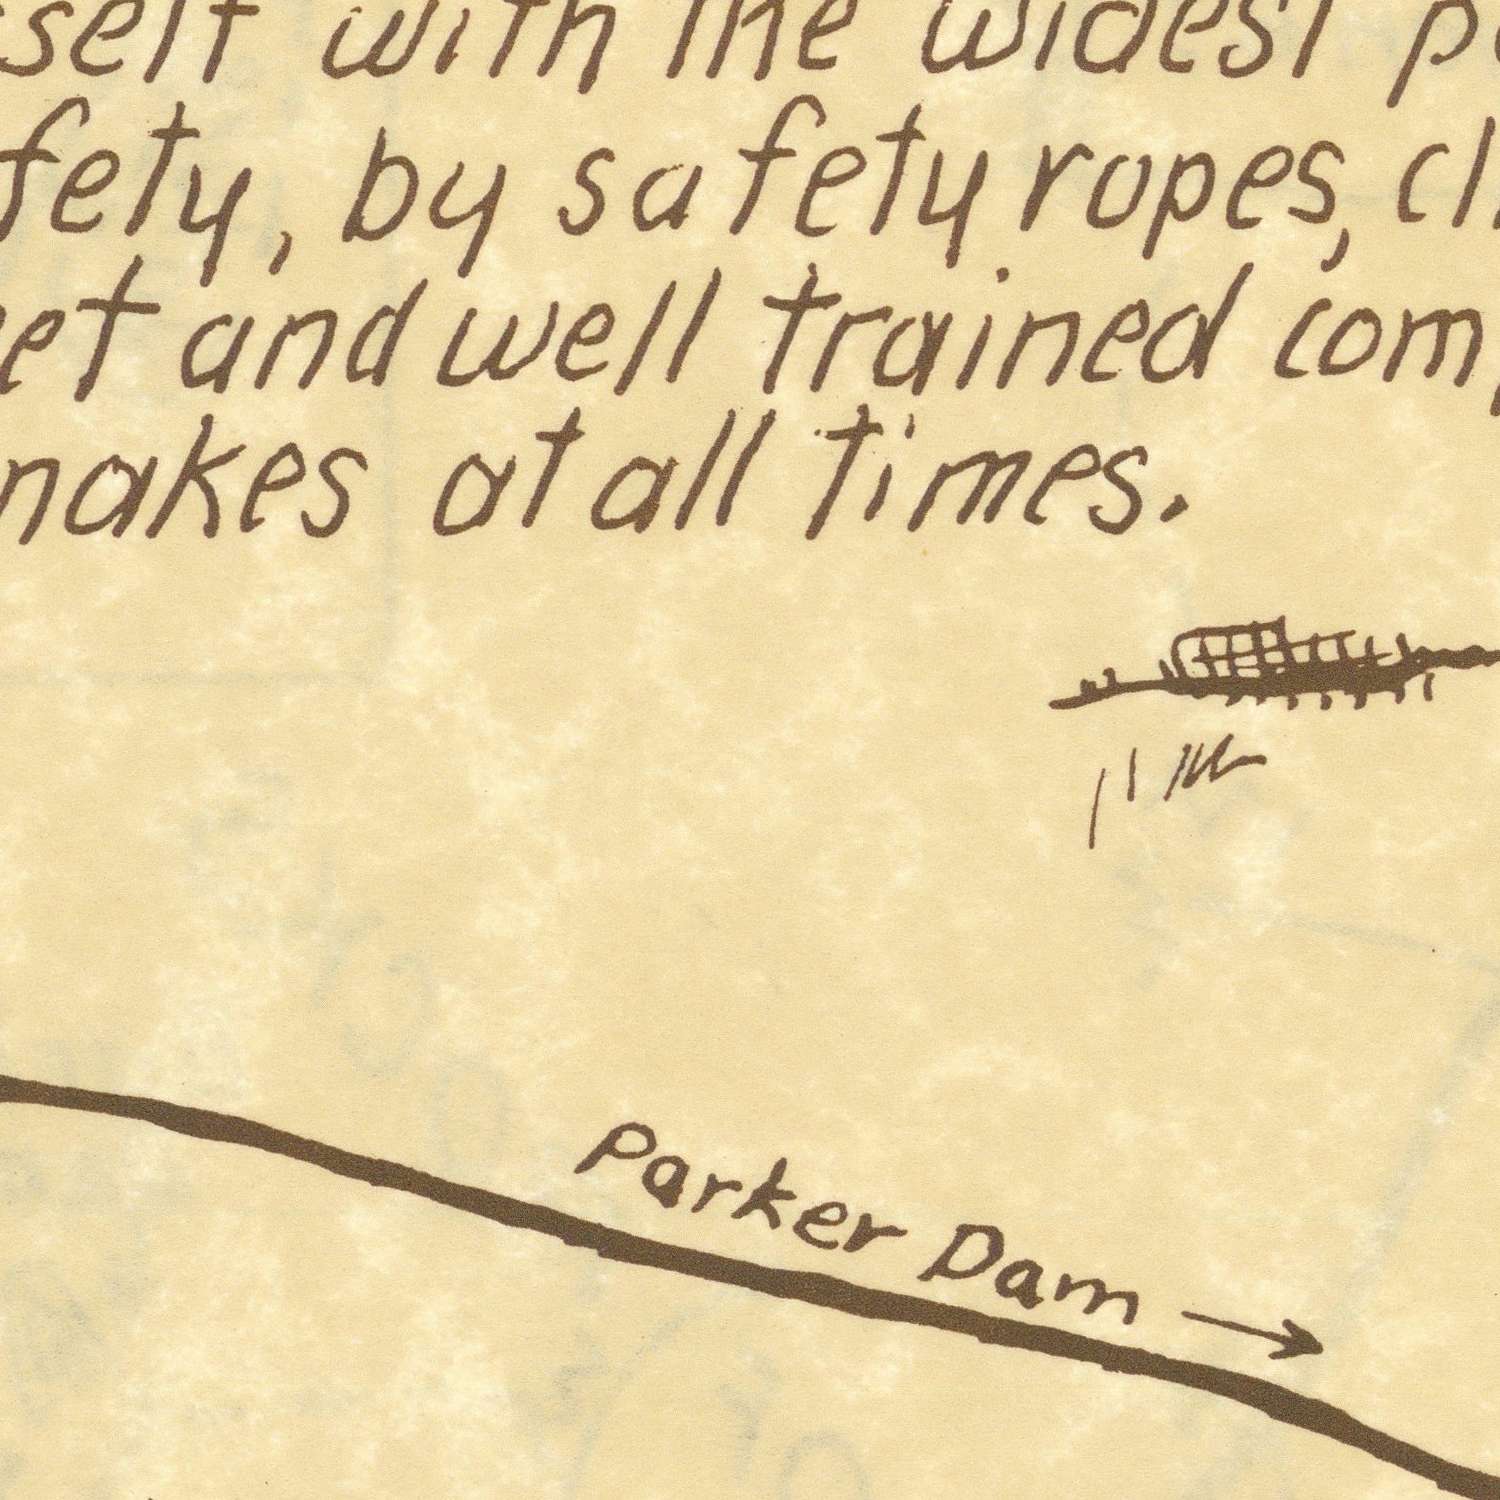 self with the widest p
fety, by safety ropes, cl
et and well trained com
nakes at all times.
Parker Dam →